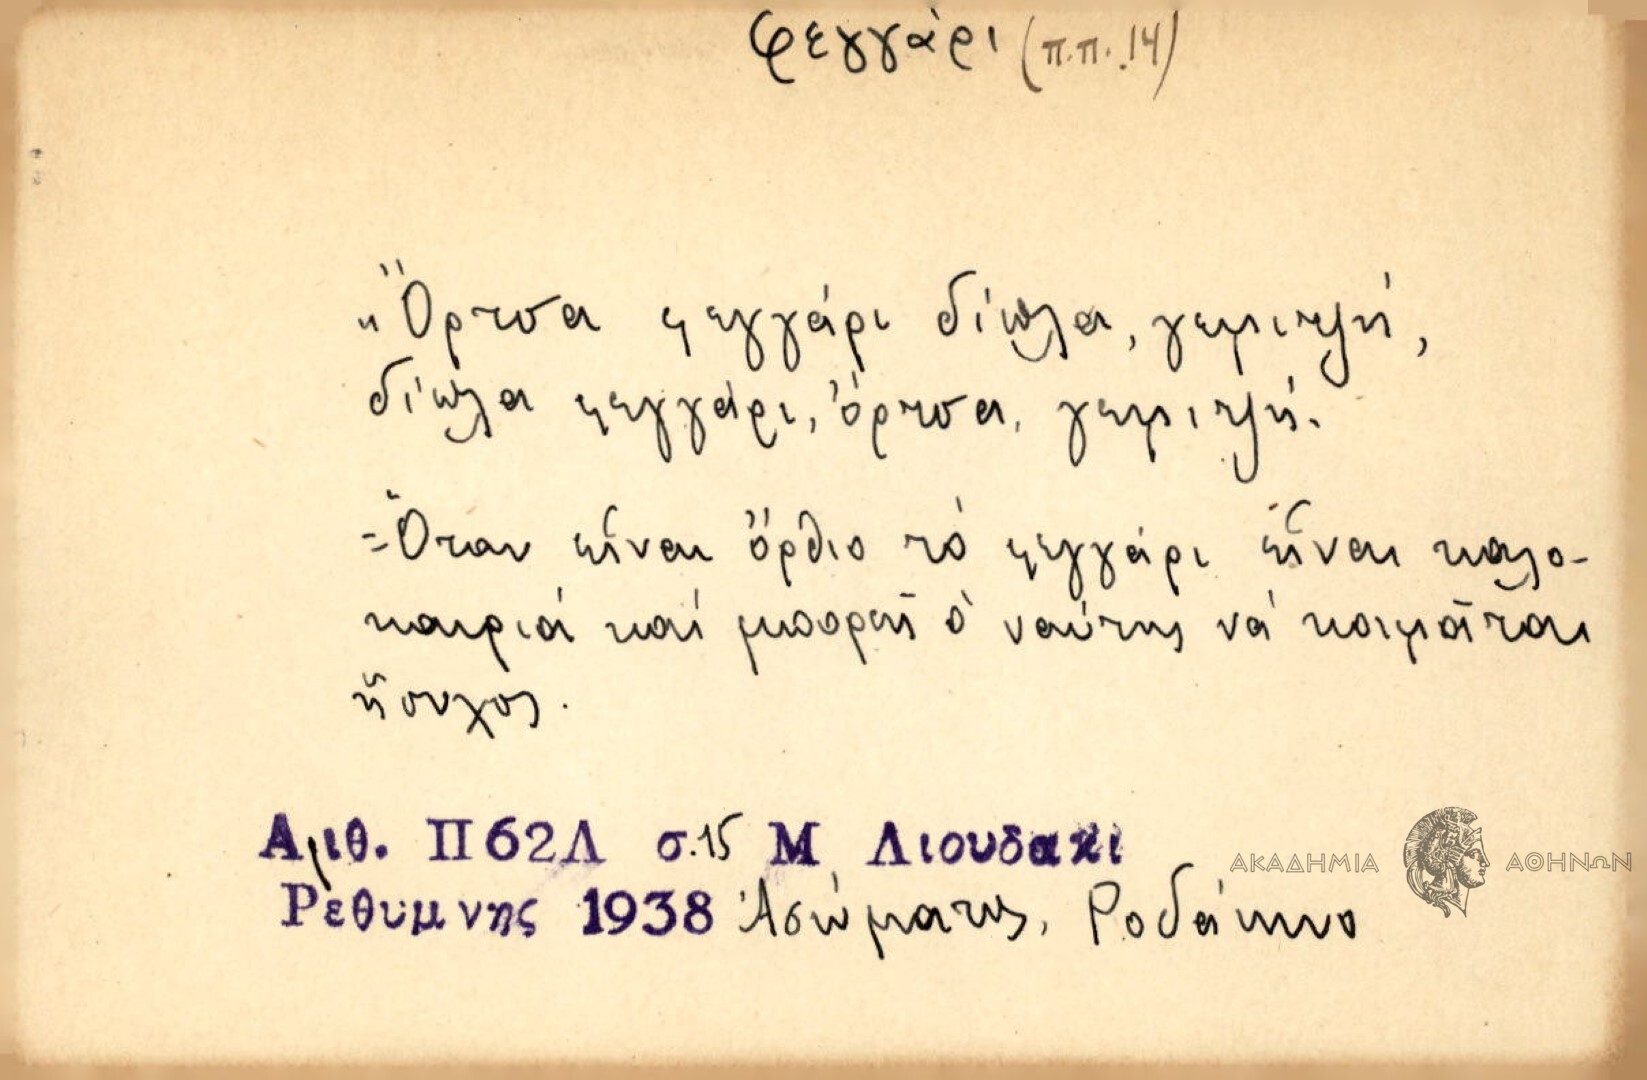 φεγγάρι (π.π. 14)
"Ὄρτσα φεγγάρι δίπλα, γεμιτζή,
δίπλα φεγγάρι, ὄρτσα, γεμιτζή.
=Ὅταν εἶναι ὄρθιο τό φεγγάρι εἶναι καλο-
καιριά καί μπορεῖ ὁ ναύτης νά κοιμᾶται
ἥσυχος.
Αριθ. Π62Λ σ.15 Μ Λιουδακι
Ρεθυμνης 1938 Ἀσώματος, Ροδάκινο
ΑΚΑΔΗΜΙΑ ΑΘΗΝΩΝ